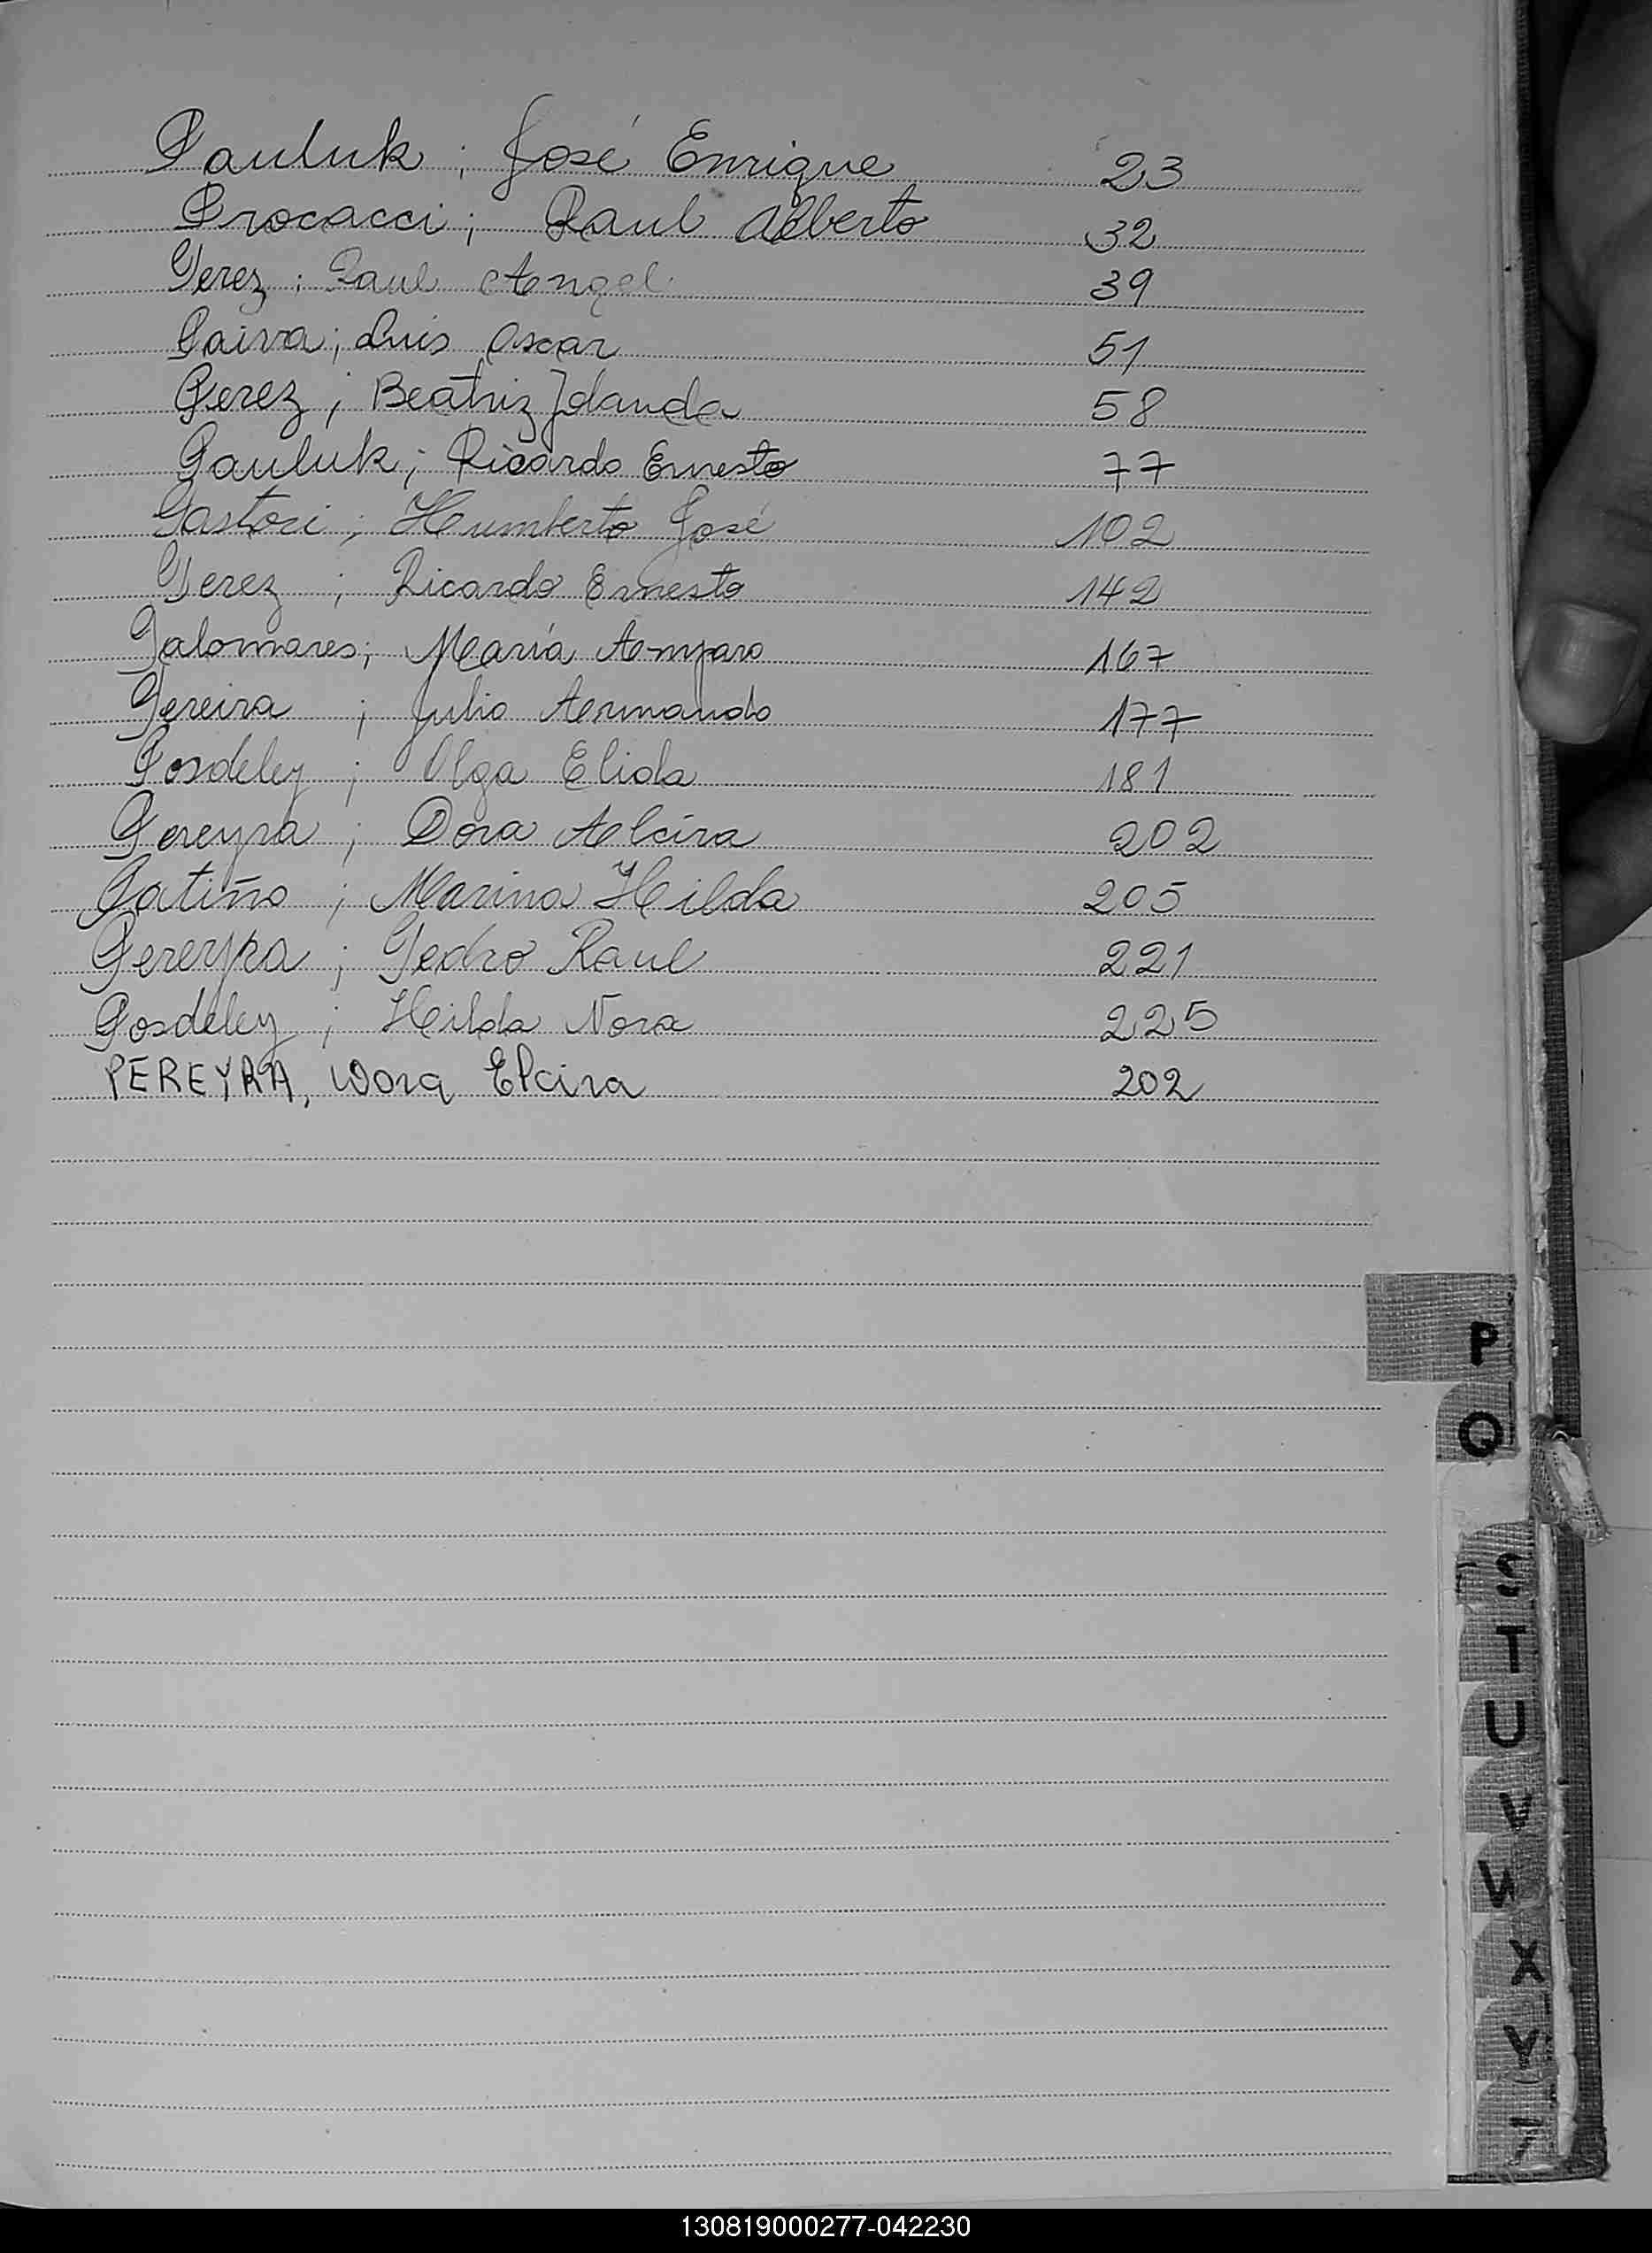 Pauluk ; José Enrique 23
Procacci ; Raul Alberto 32
Perez ; Raul Angel 39
Paiva ; Luis Oscar 51
Perez ; Beatriz Jolanda 58
Pauluk ; Ricardo Ernesto 77
Pastori ; Humberto José 102
Perez ; Ricardo Ernesto 142
Palomares ; María Amparo 167
Pereira ; Julio Armando 177
Posdeley ; Olga Elida 181
Pereyra ; Dora Alcira 202
Patiño ; Marina Hilda 205
Pereyra ; Pedro Raul 221
Posdeley ; Hilda Nora 225
PEREYRA, Dora Elcira 202
P
Q
S
T
U
V
W
X
Y
130819000277-042230